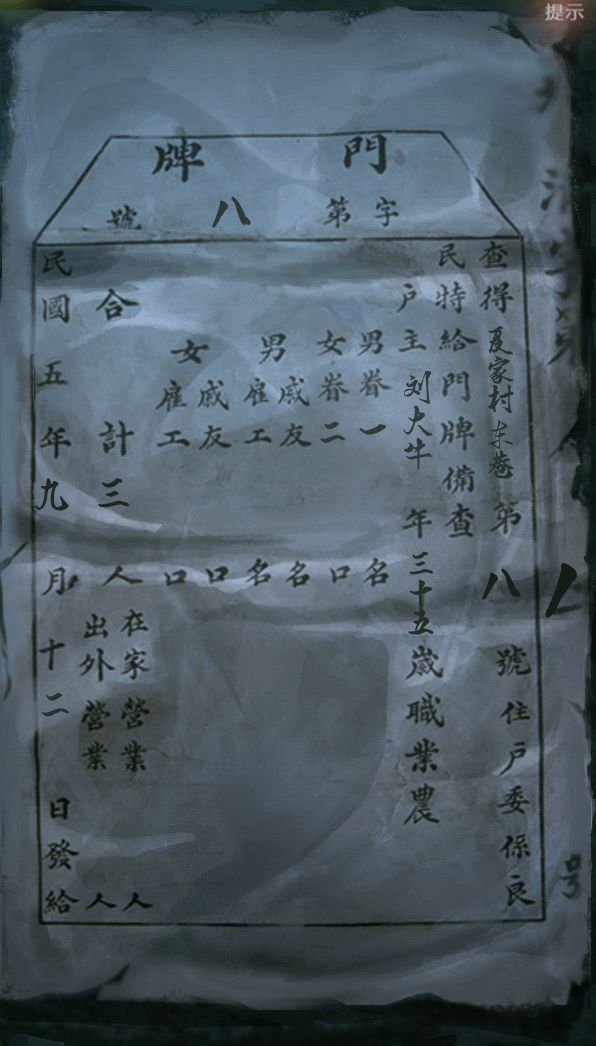 提示
門牌
字第八號
查得夏家村东巷第八號住戶委係良
民特給門牌備查
戶主刘大牛年三十五歲職業農
男眷一名
女眷二口
男戚友名
雇工名
女戚友口
雇工口
合計三人
在家營業人
出外營業人
民國五年九月十二日發給
号